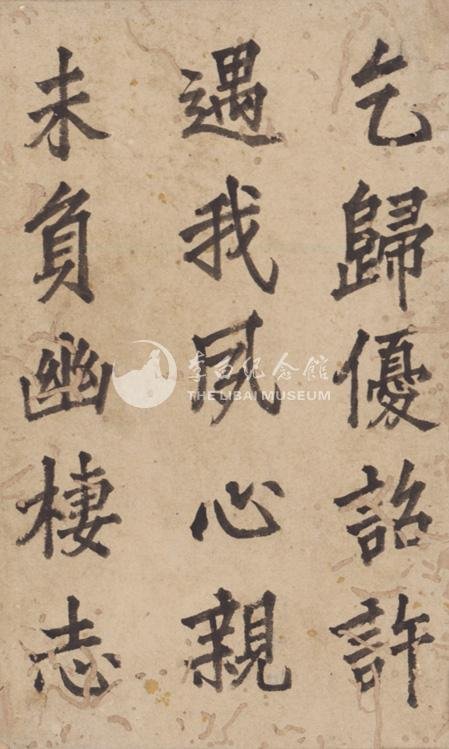 乞歸優詔許
遇我夙心親
未負幽棲志
李白紀念館
THE LIBAI MUSEUM